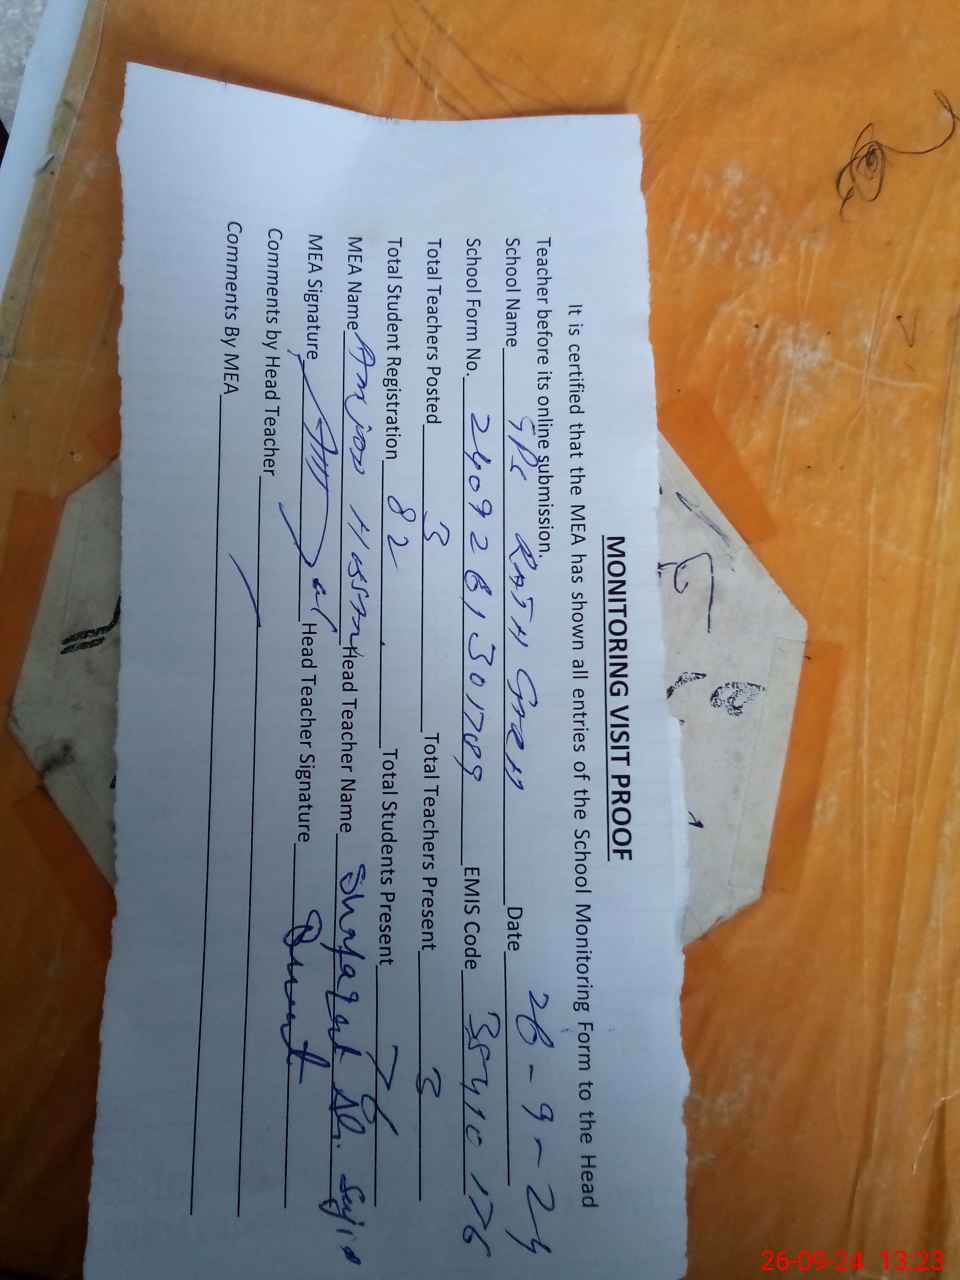 MONITORING VISIT PROOF
It is certified that the MEA has shown all entries of the School Monitoring Form to the Head
Teacher before its online submission.
School Name GPS Date 26-9-24
School Form No. 2409261301789 EMIS Code 35410176
Total Teachers Posted 3 Total Teachers Present 3
Total Student Registration 82 Total Students Present 76
MEA Name Head Teacher Name Ali
MEA Signature Head Teacher Signature
Comments by Head Teacher
Comments By MEA
26-09-24 13:23